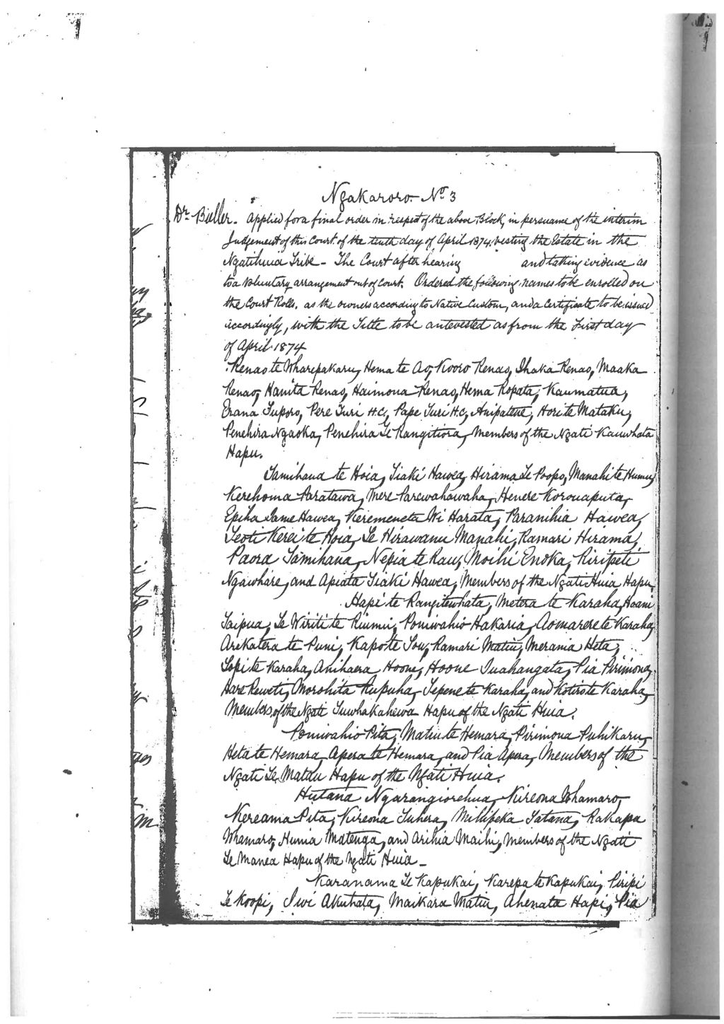 Ngakaroro - No 3
Dr. Buller. Applied for a final order in respect of the above Block, in persuance of the interim
Judgement of this Court of the tenth day of April 1874 vesting the Estate in the
Ngatihuia Tribe - The Court after hearing and taking evidence as
to a voluntary arrangement out of Court. Ordered the following names to be enrolled on
the Court Rolls, as the owners according to Native Custom, and a Certificate to be issued
accordingly, with the Title to be antevested as from the First day
of April 1874
Renao te Wharepakaru, Hema te Ao, Kooro Renao, Ihaka Renao, Maaka
Renao, Hanita Renao, Haimona Renao, Hema Ropata, Kaumatua,
Erana Tuporo, Pere Turi HC, Pape Turi HC, Hori te Mataku,
Penehira Ngaoka, Penehira Te Rangitiora, Members of the Ngati Kauwhata
Hapu.
Tamihana te Hoia, Tiaki Hawea, Hirama Te Poopo, Manahi te Humu,
Kerehoma Paratawa, Mere Parewahawaha, Henere Korouaputa,
Epiha Hawea, Keremeneta Wi Harata, Paranihia Hawea,
Teoti Kerei te Hoia, Te Hirawanu Manahi, Ramari Hirama,
Paora Tamihana, Nepia te Rau, Moihi Enoka, Riripeti
Ngawhare, and Apiata Tiaki Hawea, Members of the Ngati Huia Hapu.
Hapi te Rangitewhata, Metera te Karaha, Hoani
Taipua, Te Wiriti te Riumu, Poniwahio Hakaria, Aomarere te Karaha,
Arikatera te Puni, Kapoite Tou, Ramari Matiu, Merania Heta,
Topi te Karaha, Anihaera Hoone, Hoone Tuahangata, Pia Pirimona,
Hare Reweti, Morohita Rupuha, Tepene te Karaha, and Rotirote Karaha,
Members of the Ngati Tuwhakahewa Hapu of the Ngati Huia.
Poniwahio Pita, Matiu te Hemara, Pirimona Puhikaru,
Heta te Hemara, Apera te Hemara, and Pia Apera, Members of the
Ngati Te Matau Hapu of the Ngati Huia.
Hutana Ngarangiorehua, Kireona Whamaro,
Kereama Pita, Kireona Tuhera, Mihipeka Tatana, Kakapa
Whamaro, Hunia Matenga, and Arihia Maihi, members of the Ngati
Te Manea Hapu of the Ngati Huia -
Karanama Te Kapukai, Karepa te Kapukai, Piripi
Te Koopi, Iwi Akuhata, Maikara Matiu, Ahenata Hapi, Pia